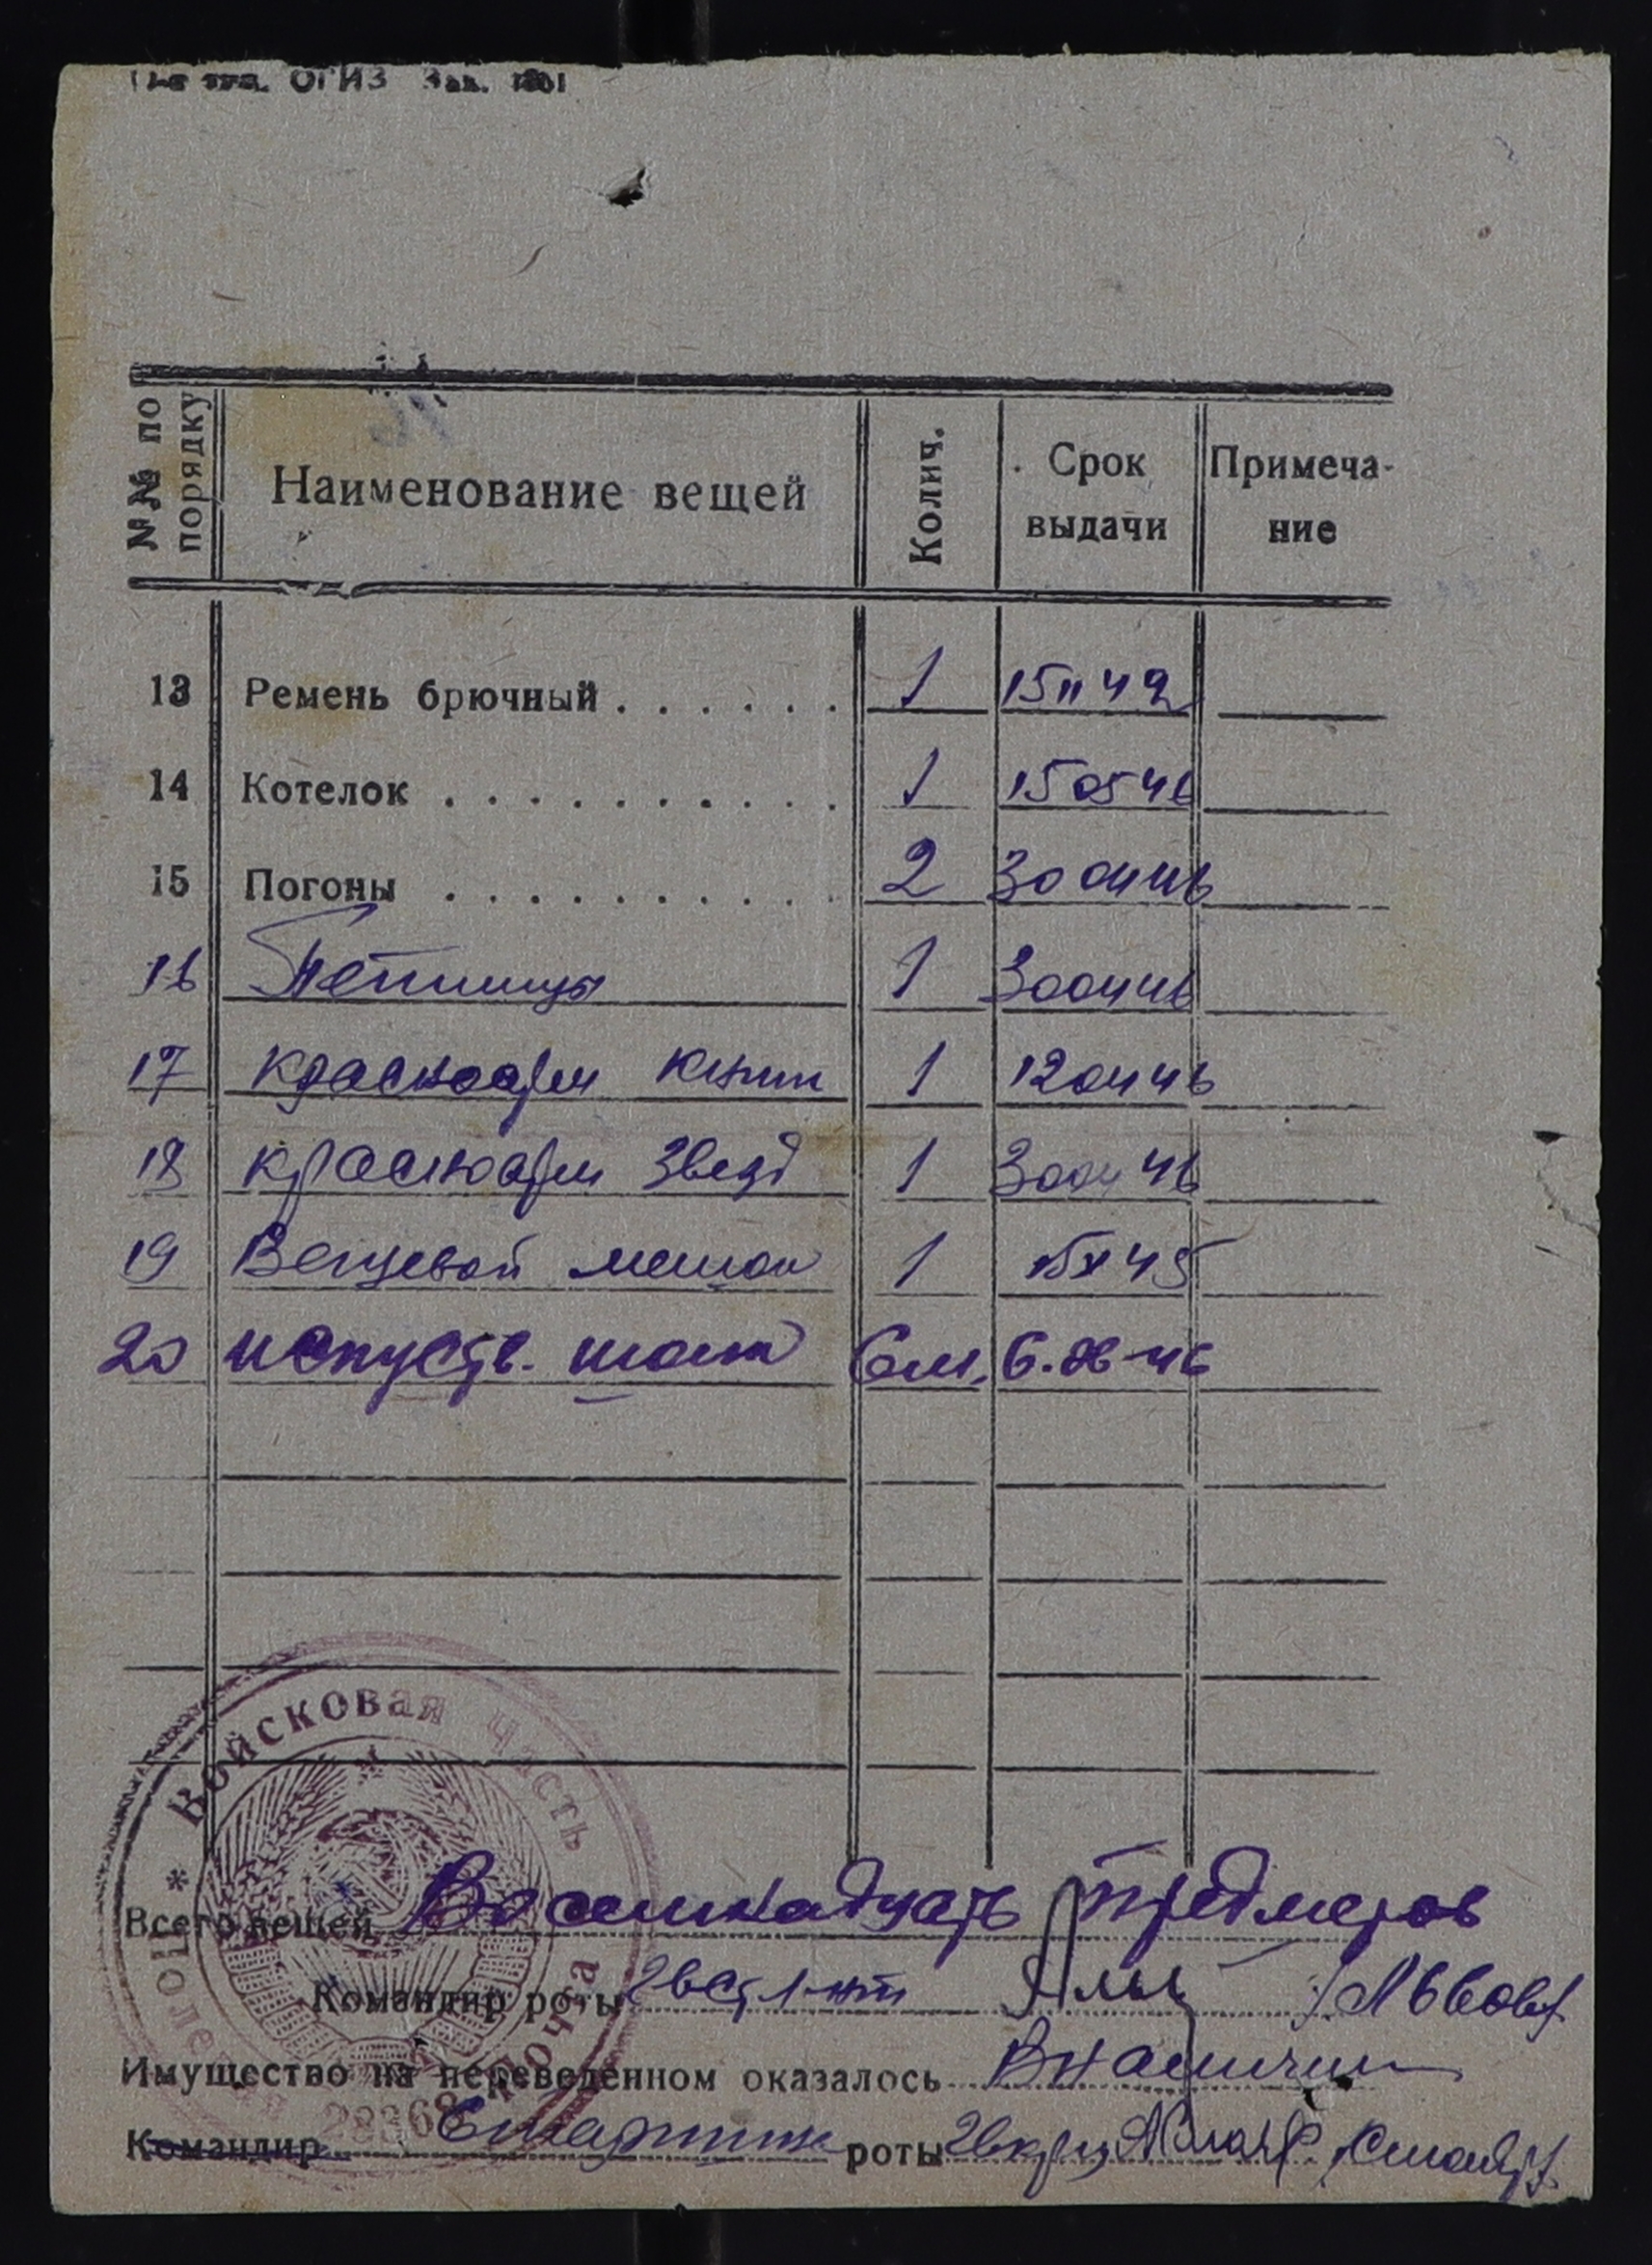 ОГИЗ Зак.
№№ по порядку
Наименование вещей
Колич.
Срок выдачи
Примечание
13 Ремень брючный . . . . . . 1 15 11 42
14 Котелок . . . . . . . . . . 1 15 05 46
15 Погоны . . . . . . . . . . 2 30 04 46
16 Петлицы 1 30 04 46
17 Красноарм книж 1 12 04 46
18 Красноарм звезд 1 30 04 46
19 Вещевой мешок 1 45
20 6 м. 6. 06 46
Войсковая часть
Полевая почта
28368
Всего вещей Восемнадцать предметов
Командир роты Гв ст л-нт /Львов/
Имущество на переведенном оказалось В наличии
Командир Старшина роты Гв